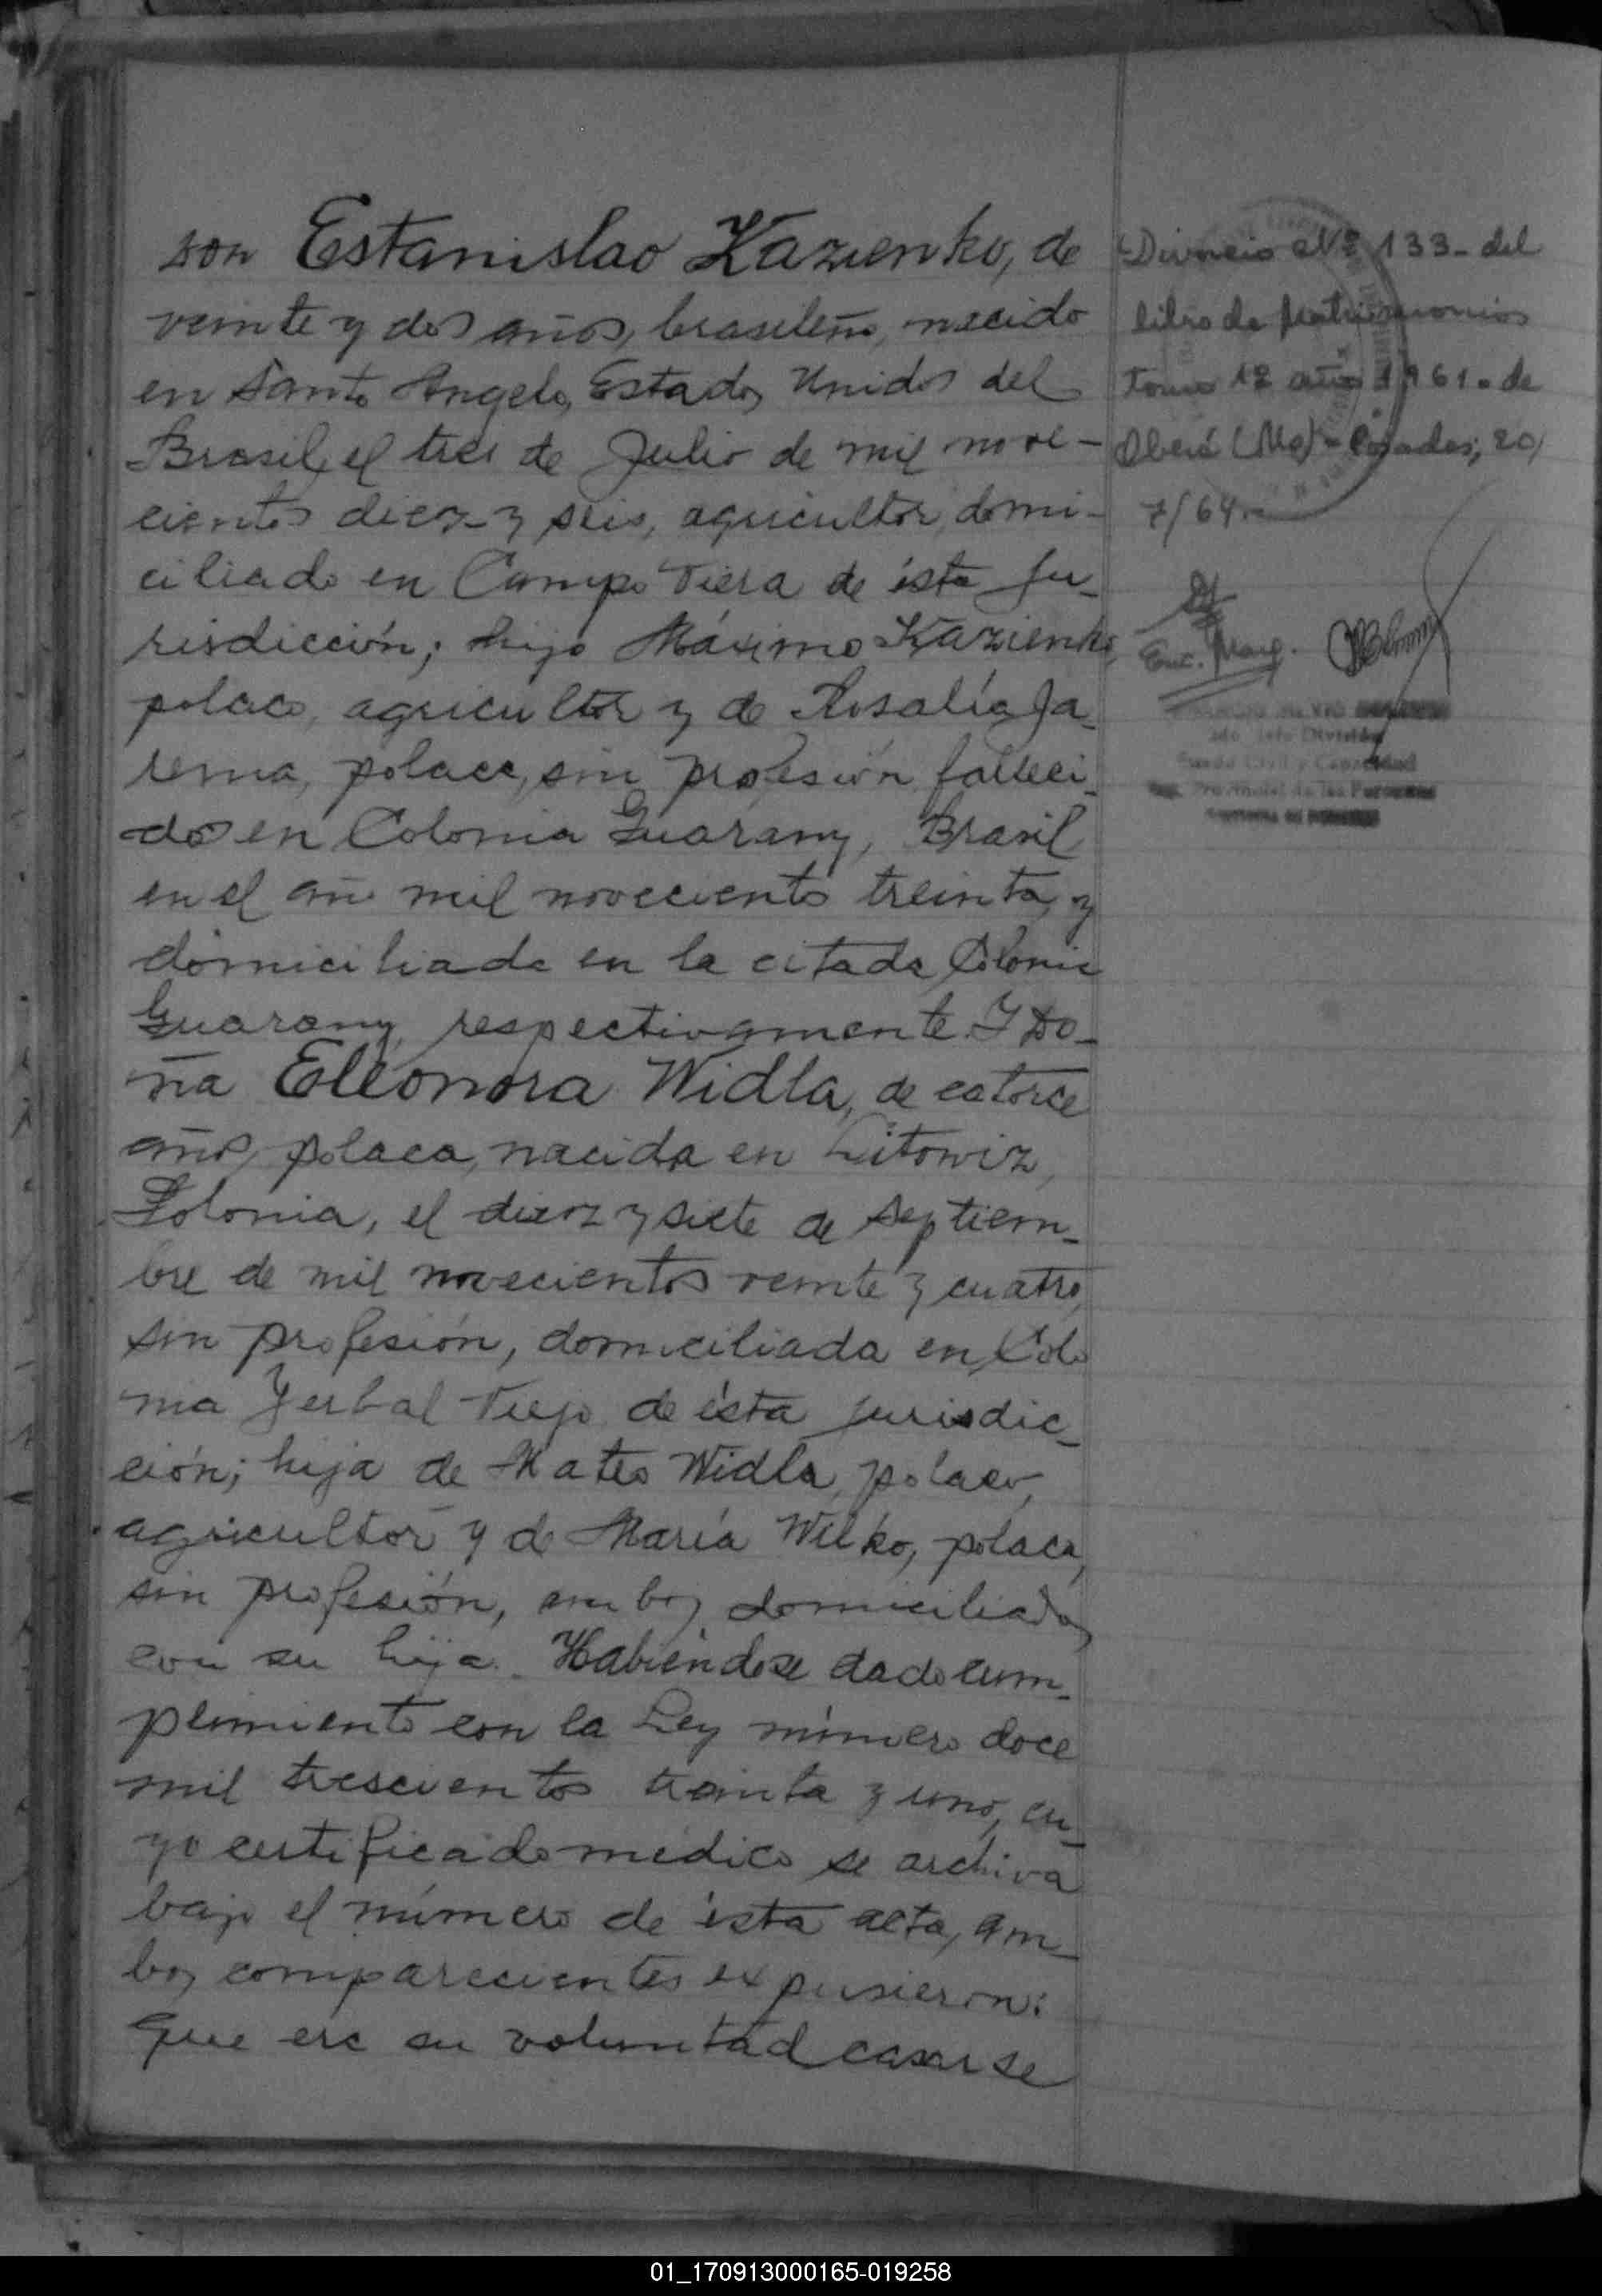 don Estanislao Kazienko, de
veinte y dos años, brasileño, nacido
en Santo Angelo, Estados Unidos del
Brasil, el tres de Julio de mil nove-
cientos diez y seis, agricultor, domi-
ciliado en Campo Viera de ésta ju-
risdicción; hijo Máximo Kazienko,
polaco, agricultor y de Rosalía Ja-
rema, polaca, sin profesión, falleci-
do en Colonia Guarany, Brasil
en el año mil novecientos treinta, y
domiciliada en la citada Colonia
Guarany, respectivamente. Y Do-
ña Eleonora Widla, de catorce
años, polaca, nacida en Litowiz,
Polonia, el diez y siete de septiem-
bre de mil novecientos veinte y cuatro,
sin profesión, domiciliada en Colo
nia Yerbal Viejo de ésta jurisdic-
ción; hija de Mateo Widla, polaco,
agricultor y de María Wilko, polaca,
sin profesión, ambos domiciliados
con su hija. Habiéndose dado cum-
plimiento con la Ley número doce
mil trescientos treinta y uno, cu-
yo certificado médico se archiva
bajo el número de ésta acta, am-
bos comparecientes expusieron:
Que era su voluntad casarse
Divorcio Nº 133- del
libro de Matrimonios
Tomo 1º año 1961. de
Oberá (Mnes)- Posadas, 20/
7/64.-
Enc. Marg.
Jefe División
Estado Civil y Capacidad
Reg. Provincial de las Personas
01_170913000165-019258